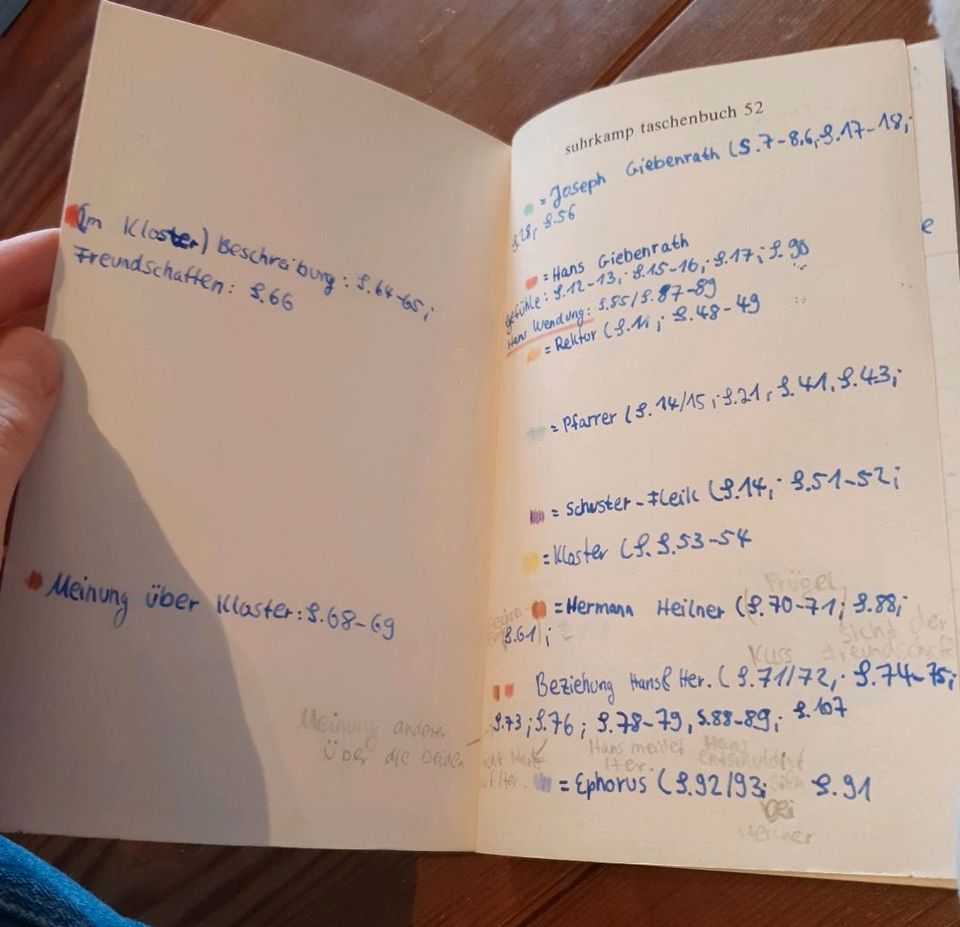 (Im Kloster) Beschreibung: S.64-65;
Freundschaften: S.66
Meinung über Kloster: S.68-69
Meinung anderer
über die beiden
suhrkamp taschenbuch 52
= Joseph Giebenrath (S.7-8,6, S.17-18;
S.28, S.56
= Hans Giebenrath
gefühle: S.12-13; S.15-16; S.17; S.90
Hans Wendung: S.85/S.87-89
= Rektor (S.11; S.48-49
= Pfarrer (S.14/15; S.21, S.41, S.43;
= Schuster-Fleik (S.14; S.51-52;
= Kloster (S. S.53-54
Prügel
= Hermann Heilner (S.70-71; S.88;
S.61;
Sicht der
Kuss Freundschaft
Beziehung Hans& Her. (S.71/72, S.74-75;
S.73; S.76; S.78-79, S.88-89; S.107
Hans meidet Hans
Her. entschuldigt
= Ephorus (S.92/93; sich S.91
bei
Heilner